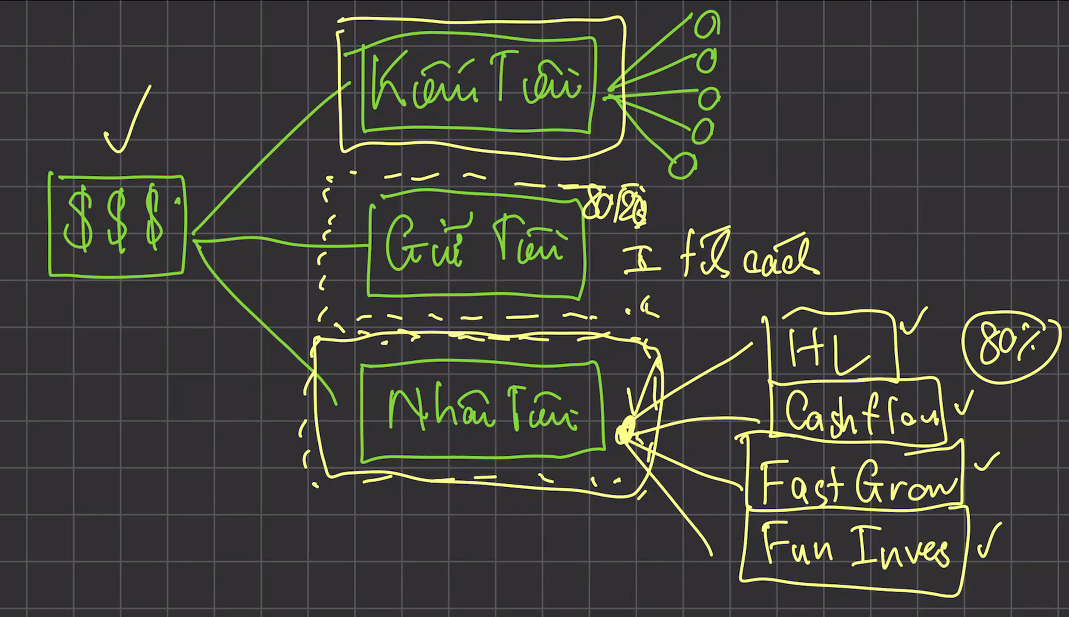 $ $ $
Kiếm Tiền
Giữ Tiền
80/20
I
cách
Nhân Tiền
HL
80%
Cashflow
Fast Grow
Fun Inves